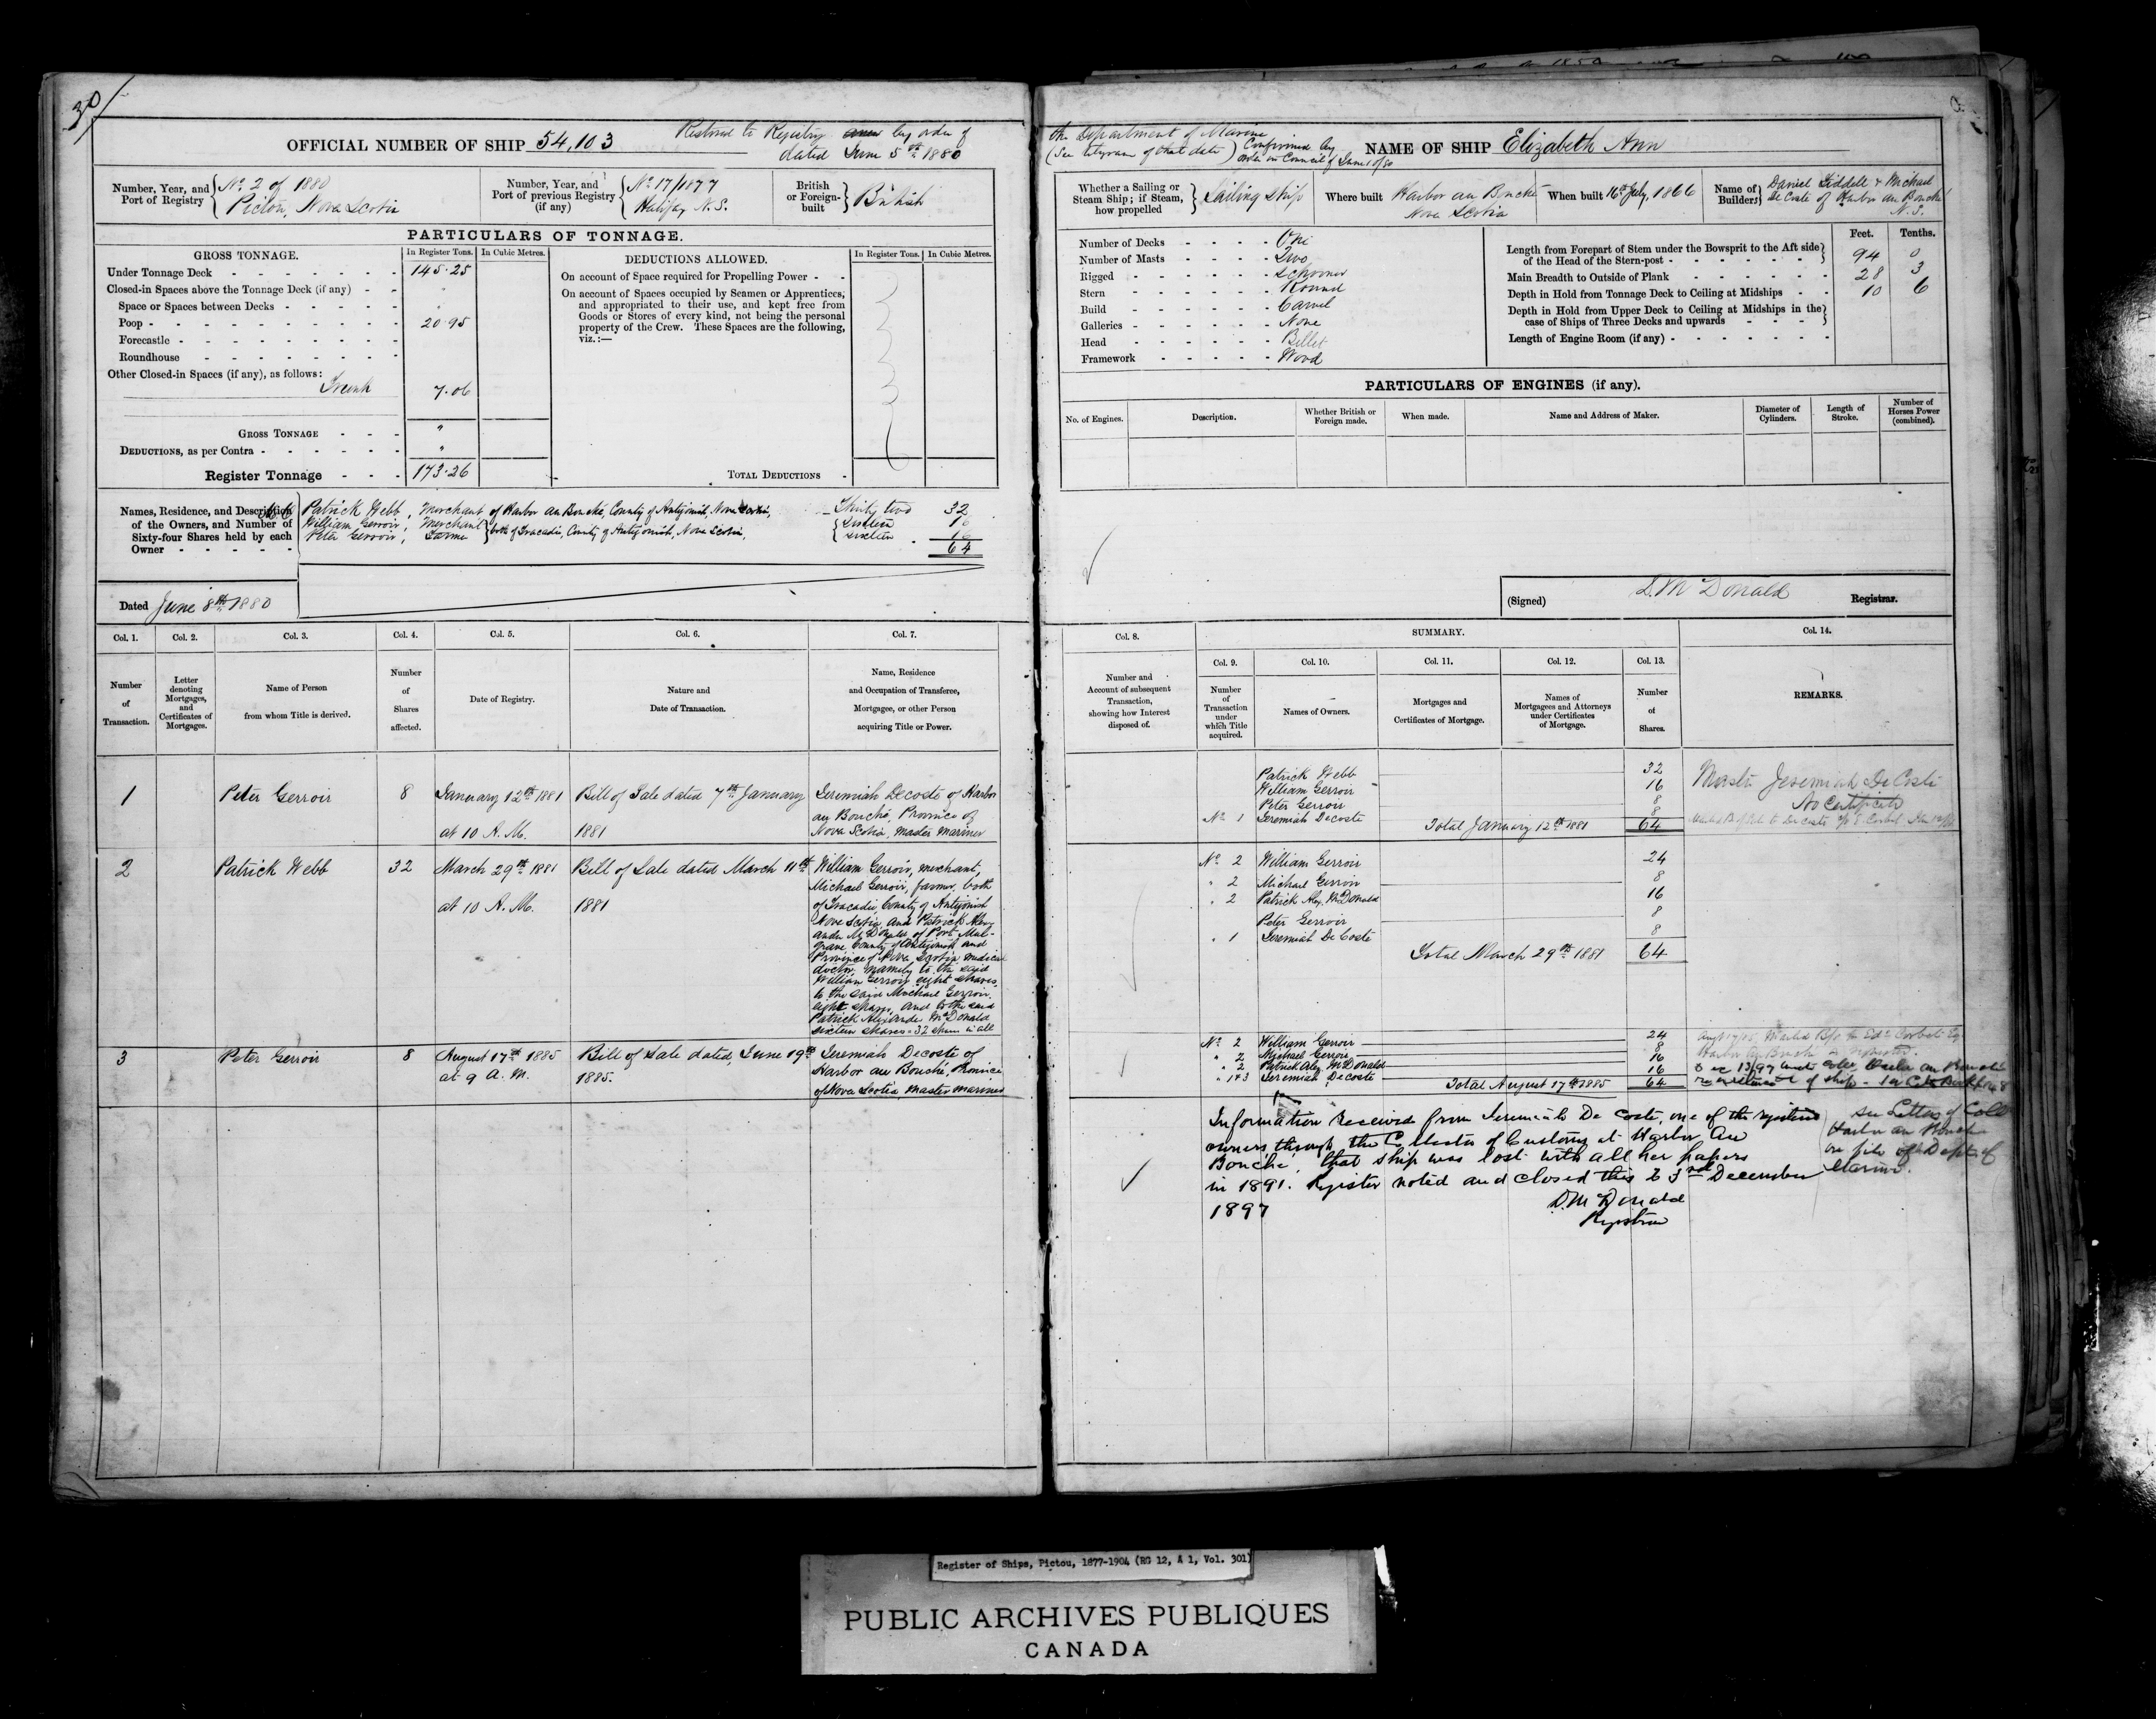 30
OFFICIAL NUMBER OF SHIP 54,103
Restored to Registry by order of
dated June 5th 1880
Number, Year, and Port of Registry No. 2 of 1880
Pictou, Nova Scotia
Number, Year, and Port of previous Registry (if any) No. 17/1877
Halifax N.S.
British or Foreign-built British
PARTICULARS OF TONNAGE.
GROSS TONNAGE. In Register Tons. In Cubic Metres.
Under Tonnage Deck 145.25
Closed-in Spaces above the Tonnage Deck (if any) "
Space or Spaces between Decks "
Poop 20.95
Forecastle
Roundhouse
Other Closed-in Spaces (if any), as follows:
Trunk 7.06
GROSS TONNAGE "
DEDUCTIONS, as per Contra "
Register Tonnage 173.26
DEDUCTIONS ALLOWED. In Register Tons. In Cubic Metres.
On account of Space required for Propelling Power
On account of Spaces occupied by Seamen or Apprentices,
and appropriated to their use, and kept free from
Goods or Stores of every kind, not being the personal
property of the Crew. These Spaces are the following,
viz.:—
TOTAL DEDUCTIONS
Names, Residence, and Description
of the Owners, and Number of
Sixty-four Shares held by each
Owner
Patrick Webb, Merchant of Harbor au Bouché, County of Antigonish, Nova Scotia, Thirty two 32
William Gerroir, Merchant } both of Tracadie, County of Antigonish, Nova Scotia, { Sixteen 16
Peter Gerroir, Farmer Sixteen 16
64
Dated June 8th 1880
Col. 1. Col. 2. Col. 3. Col. 4. Col. 5. Col. 6. Col. 7.
Number of Transaction.
Letter denoting Mortgages, and Certificates of Mortgages.
Name of Person from whom Title is derived.
Number of Shares affected.
Date of Registry.
Nature and Date of Transaction.
Name, Residence and Occupation of Transferee, Mortgagee, or other Person acquiring Title or Power.
1 Peter Gerroir 8 January 12th 1881 Bill of Sale dated 7th January Jeremiah Decoste of Harbor
au Bouché, Province of
at 10 A.M. 1881 Nova Scotia, Master Mariner
2 Patrick Webb 32 March 29th 1881 Bill of Sale dated March 11th William Gerroir, merchant,
Michael Gerroir, farmer, both
at 10 A.M. 1881 of Tracadie, County of Antigonish
Nova Scotia and Patrick Alex-
ander McDonald of Port Mul-
grave County of Antigonish and
Province of Nova Scotia medical
doctor, namely to the said
William Gerroir eight shares,
to the said Michael Gerroir
eight shares, and to the said
Patrick Alexander McDonald
sixteen shares = 32 shares in all
3 Peter Gerroir 8 August 17th 1885 Bill of Sale dated, June 19th Jeremiah Decoste of
at 9 A.M. 1885. Harbor au Bouché, Province
of Nova Scotia, Master Mariner
the Department of Marine
(See telegram of that date) Confirmed by
order in Council of June 10/80
NAME OF SHIP Elizabeth Ann
Whether a Sailing or Steam Ship; if Steam, how propelled Sailing Ship
Where built Harbor au Bouché
Nova Scotia
When built 16th July, 1866
Name of Builders Daniel Liddell & Michael
De Coste of Harbor au Bouché
N.S.
Number of Decks One
Number of Masts Two
Rigged Schooner
Stern Round
Build Carvel
Galleries None
Head Billet
Framework Wood
Feet. Tenths.
Length from Forepart of Stem under the Bowsprit to the Aft side
of the Head of the Stern-post 94 0
Main Breadth to Outside of Plank 28 3
Depth in Hold from Tonnage Deck to Ceiling at Midships 10 6
Depth in Hold from Upper Deck to Ceiling at Midships in the
case of Ships of Three Decks and upwards
Length of Engine Room (if any)
PARTICULARS OF ENGINES (if any).
No. of Engines. Description. Whether British or Foreign made. When made. Name and Address of Maker. Diameter of Cylinders. Length of Stroke. Number of Horses Power (combined).
(Signed) D. McDonald Registrar.
Col. 8. SUMMARY. Col. 14.
Col. 9. Col. 10. Col. 11. Col. 12. Col. 13.
Number and Account of subsequent Transaction, showing how Interest disposed of.
Number of Transaction under which Title acquired.
Names of Owners.
Mortgages and Certificates of Mortgage.
Names of Mortgagees and Attorneys under Certificates of Mortgage.
Number of Shares.
REMARKS.
Patrick Webb 32 Master Jeremiah DeCoste
William Gerroir 16 No Certificate
Peter Gerroir 8
No. 1 Jeremiah Decoste 8
Total January 12th 1881 64
No. 2 William Gerroir 24
" 2 Michael Gerroir 8
" 2 Patrick Alex. McDonald 16
Peter Gerroir 8
" 1 Jeremiah DeCoste 8
Total March 29th 1881 64
No. 2 William Gerroir 24
" 2 Michael Gerroir 8
" 2 Patrick Alex. McDonald 16
" 1 & 3 Jeremiah Decoste 16
Total August 17th 1885 64
Information Received from Jeremiah De Coste, one of the registered
owners, through the Collector of Customs at Harbor Au
Bouche, that ship was lost with all her papers
in 1891. Register noted and closed this 23rd December
1897
D. McDonald
Registrar
see Letter of Coll
Harbor au Bouche
on file of Dept of
Marine.
Register of Ships, Pictou, 1877-1904 (RG 12, A 1, Vol. 301)
PUBLIC ARCHIVES PUBLIQUES
CANADA